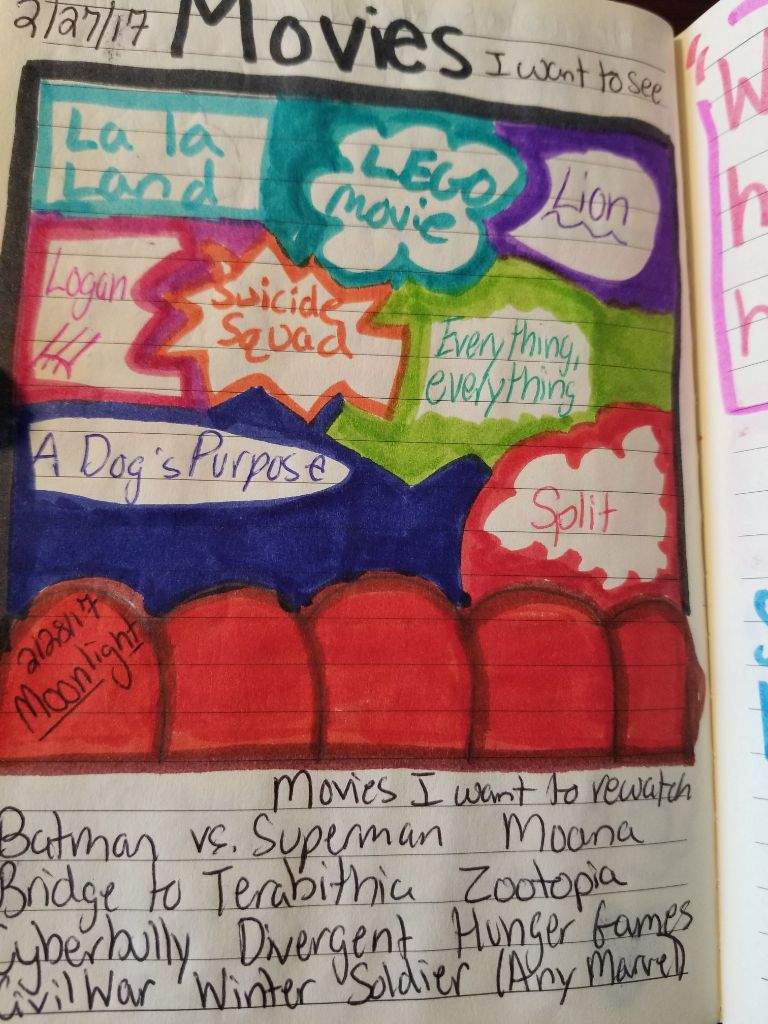 2/27/17 Movies I want to see
La la
Land
LEGO
movie
Lion
Logan
Suicide
Squad
Everything,
everything
A Dog's Purpose
Split
2/28/17
Moonlight
Movies I want to rewatch
Batman vs. Superman Moana
Bridge to Terabithia Zootopia
Cyberbully Divergent Hunger Games
Civil War Winter Soldier (Any Marvel)